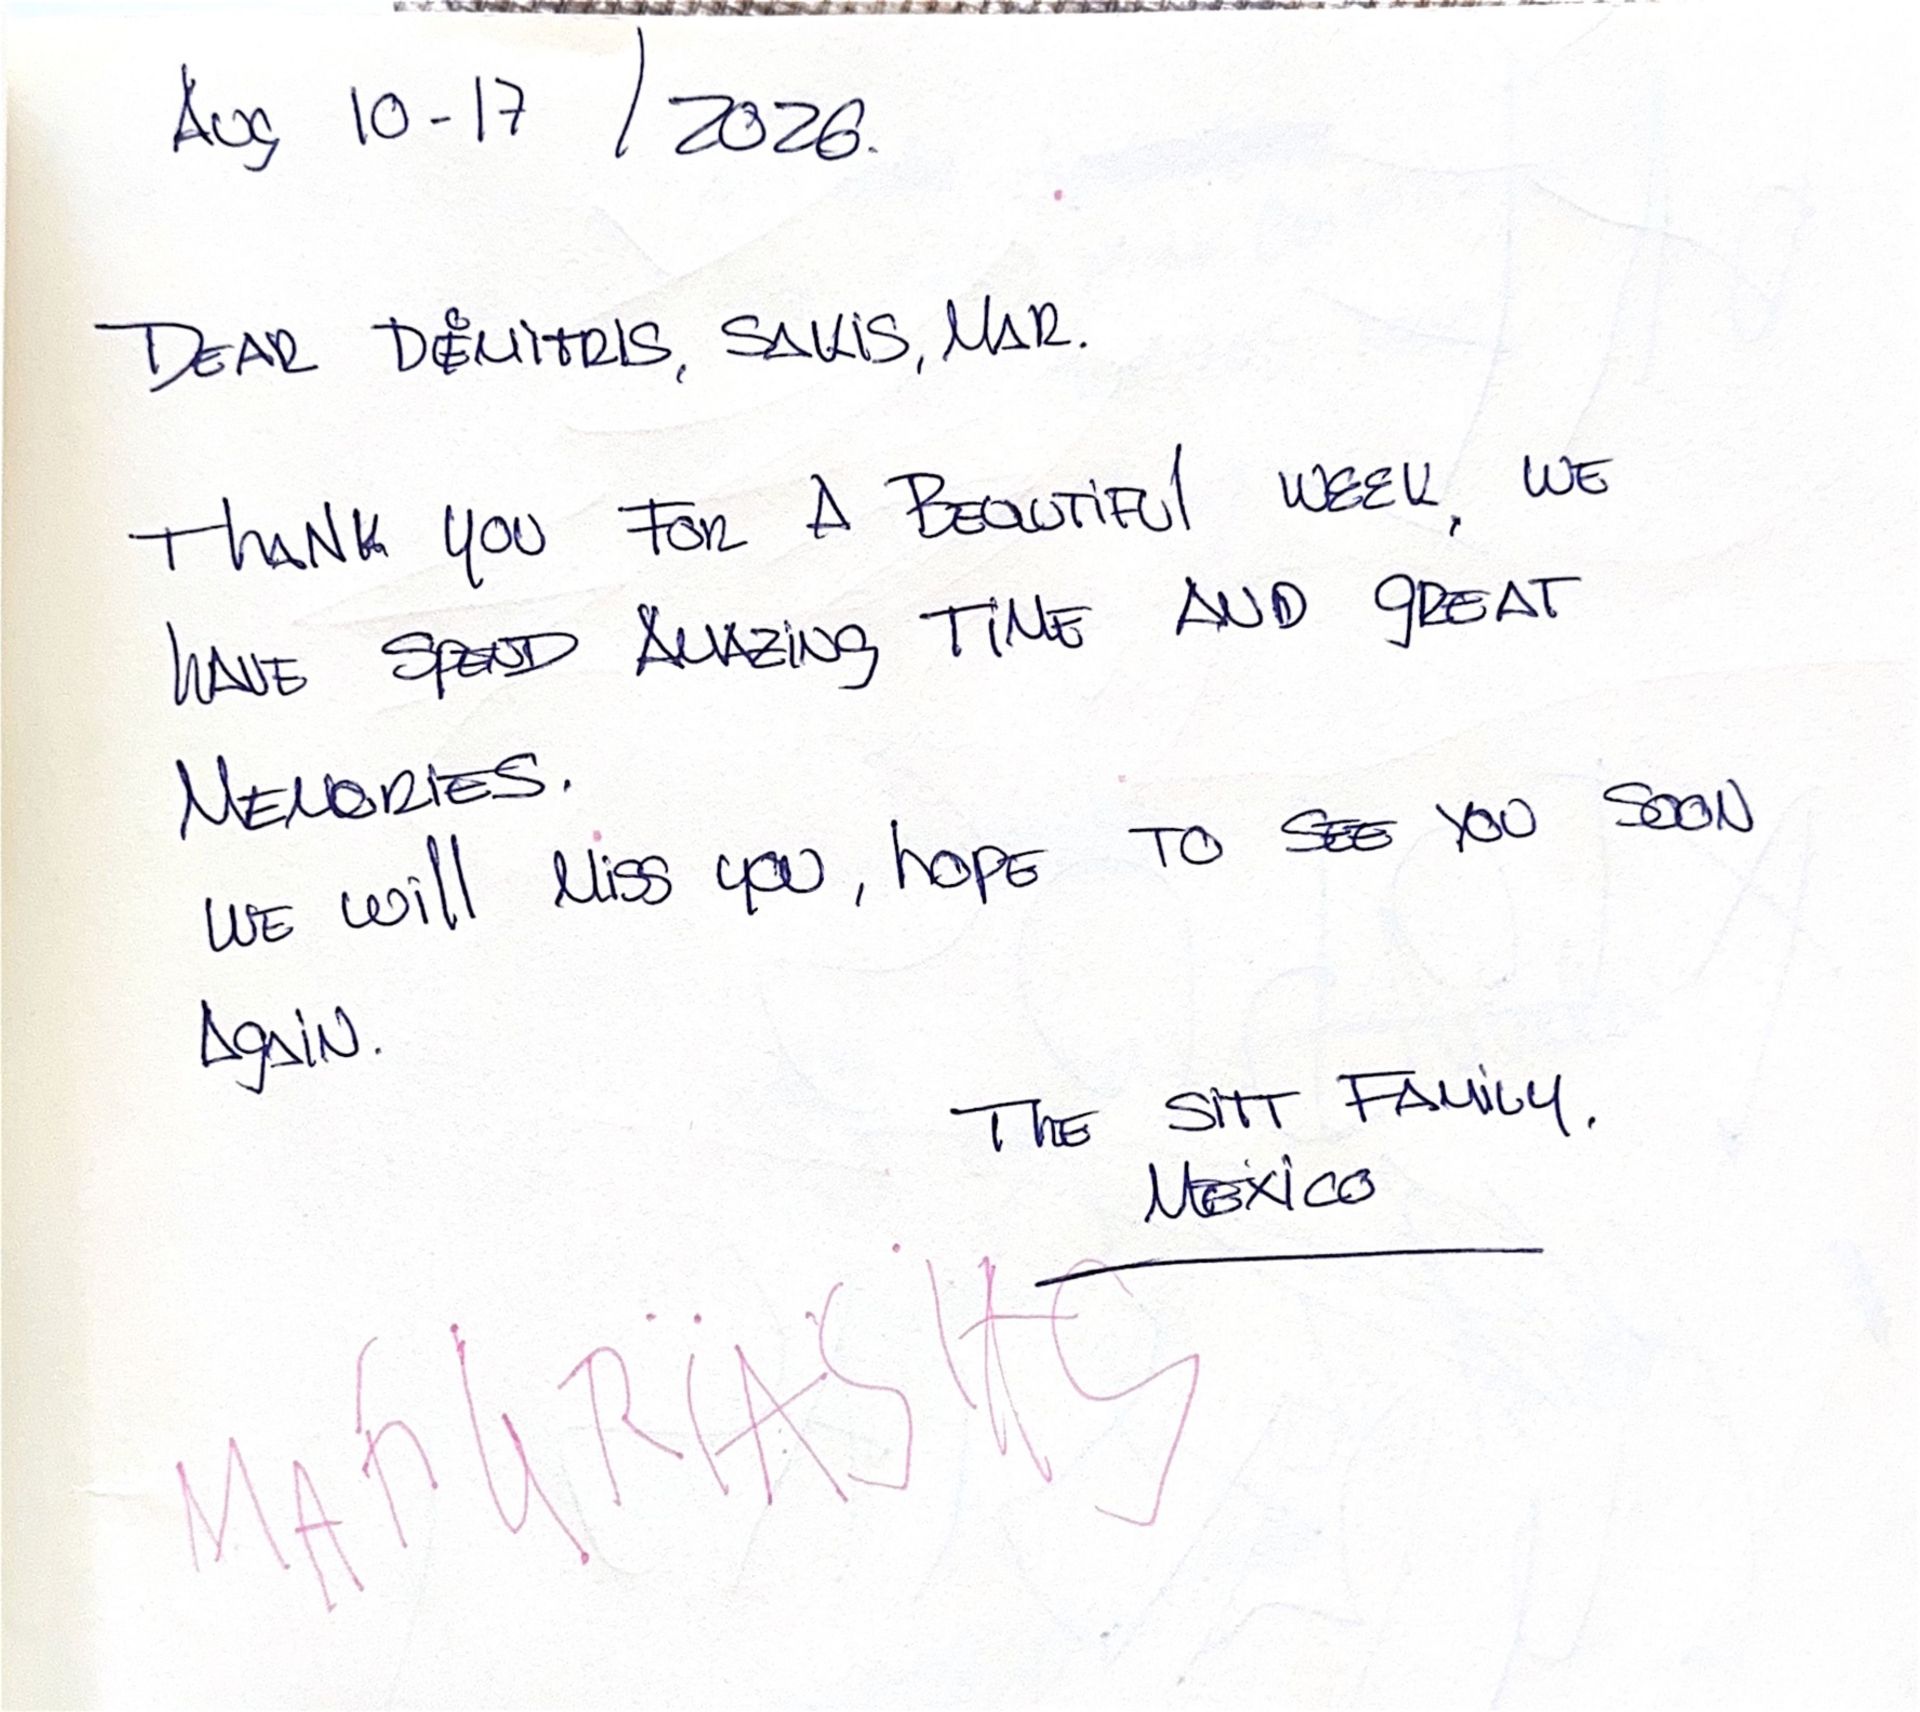 Aug 10-17 / 2026.
DEAR DEMITRIS, SAKIS, MAR.
THANK YOU FOR A BEAUTIFUL WEEK, WE
HAVE SPEND AMAZING TIME AND GREAT
MEMORIES.
WE will Miss you, hope TO SEE YOU SOON
AGAIN.
THE SITT FAMILY.
MEXICO